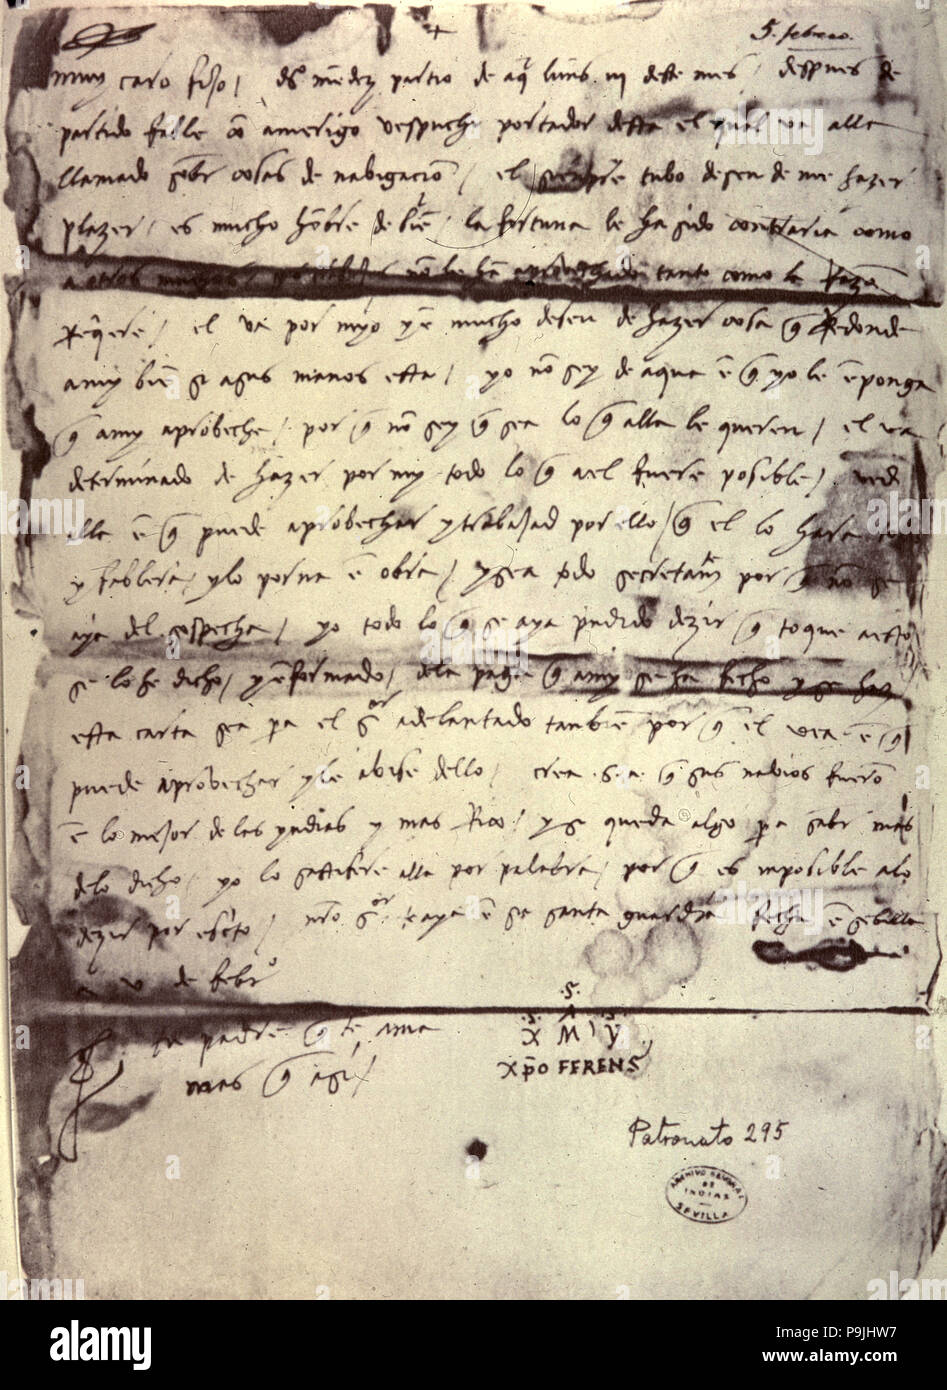 5. febrero.
muy caro fijo / dº mēdez partio de aq̄ lunes iij deste mes / despues de
partido fable cō amerigo vespuchi portador desta el qual va alla
llamado sobr̄ cosas de nabigaciō / el siēpre tubo deseo de me hazer
plazer / es mucho hōbre de biē / la fortuna le ha sido contraria como
a otros muchos / sus trabajos nō le hā aprobechado tanto como la razō
reqere / el va por myo y ē mucho deseo de hazer cosa q̄ redonde
a my biē si a sus manos esta / yo nō sey de aqua ē q̄ yo le ēponga
q̄ a my aprobeche / por q̄ nō sey q̄ sea lo q̄ alla le queren / el va
determinado de hazer por my todo lo q̄ a el fuere posible / ved
alla ē q̄ puede aprobechar y trabajad por ello / q̄ el lo hara
y fablera / y lo porna ē obra / y sea todo secretam̄ por q̄ nō se
aya del sospecha / yo todo lo q̄ se aya pudido dezir q̄ toque a esto
se lo he dicho / y ēformado / dela paga q̄ a my se ha fecho y se haz
esta carta sea p̄a el sor adelantado tanbiē por q̄ el vea ē q̄
puede aprobechar y le abise dello / crea .s.a. q̄ sus nabios fuerō
ē lo mejor de las yndias y mas rico / y si queda algo p̄a sabr̄ mas
delo dicho / yo lo sattisfere alla por palabra / por q̄ es inposible a lo
dezir por escᵗo / nr̄o sor te aya ē su santa guardia fecha ē sebilla
a v de febrº
tu padre q̄ te ama
mas q̄ a sy /
.S.
.S. A .S.
X M Y
Xp̄o FERENS
Patronato 295
ARCHIVO GENERAL
DE
INDIAS
SEVILLA
alamy
Image ID: P9JHW7
www.alamy.com